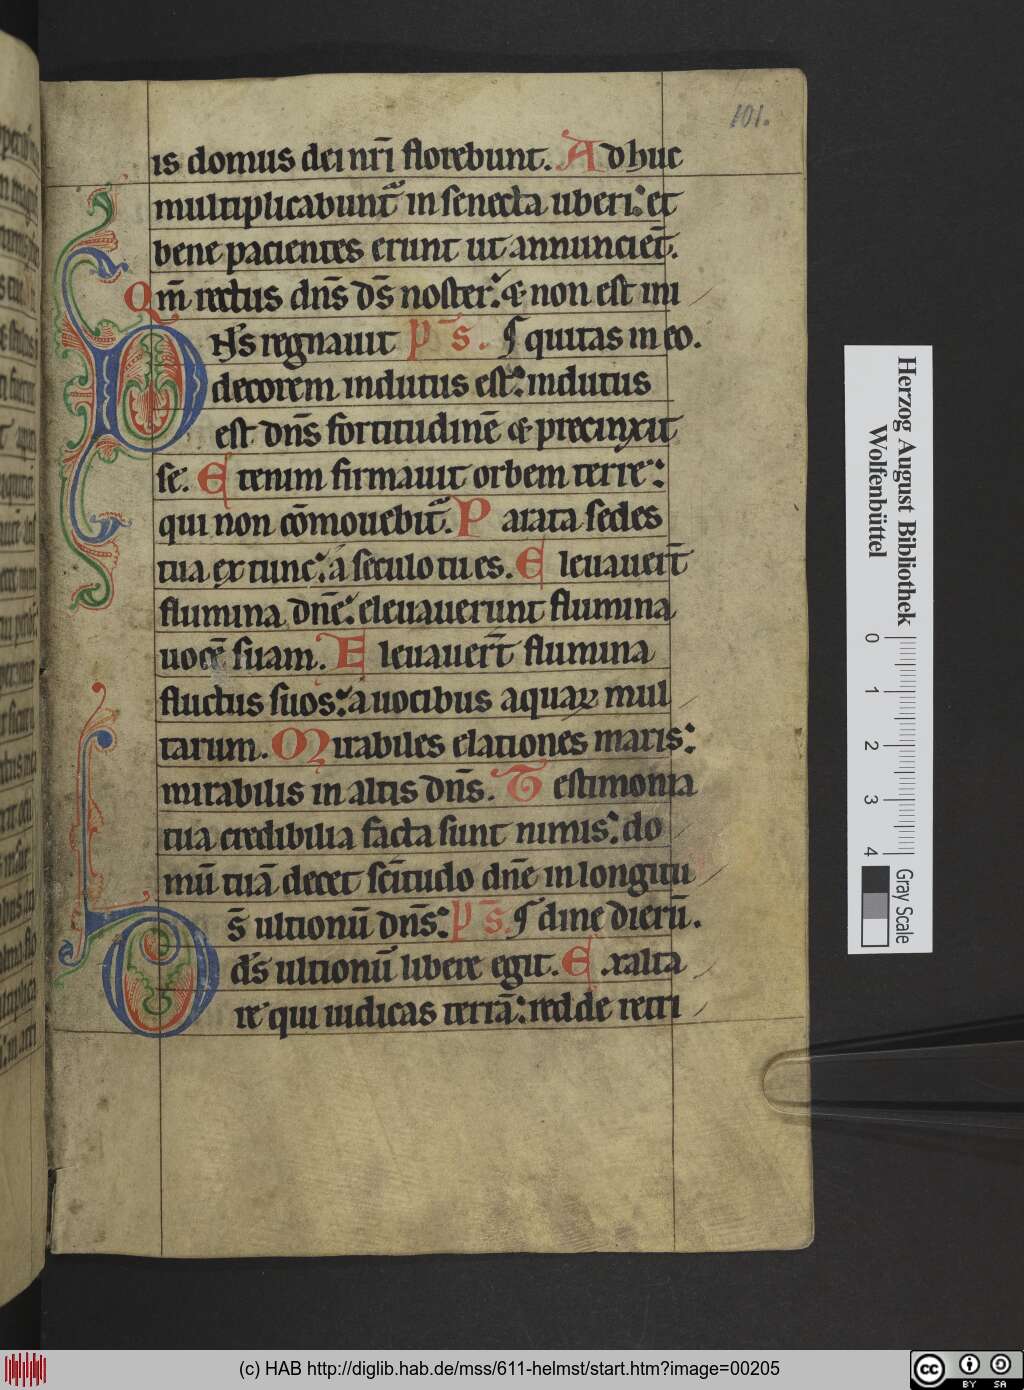 101.
is domus dei nr̄i florebunt. Adhuc
multiplicabunt᷑ in senecta uberi: et
bene pacientes erunt ut annunciēt.
Qm̄ rectus dn̄s ds̄ noster: & non est ini
DN̄s regnauit ps̄. ¶ quitas in eo.
decorem indutus est: indutus
est dn̄s fortitudinē & precinxit
se. Etenim firmauit orbem terre:
qui non cōmouebit᷑. Parata sedes
tua ex tunc: a seculo tu es. Eleuauer̄t
flumina dn̄e: eleuauerunt flumina
uocē suam. Eleuauer̄t flumina
fluctus suos: a uocibus aquaꝝ mul
tarum. Mirabiles elationes maris:
mirabilis in altis dn̄s. Testimonia
tua credibilia facta sunt nimis: do
mū tuā decet sc̄itudo dn̄e in longitu
Ds̄ ultionū dn̄s: ps̄. ¶ dine dierū.
ds̄ ultionū libere egit. Exalta
re qui iudicas terrā: redde retri
Herzog August Bibliothek
Wolfenbüttel
0 1 2 3 4
Gray Scale
(c) HAB http://diglib.hab.de/mss/611-helmst/start.htm?image=00205
cc BY SA